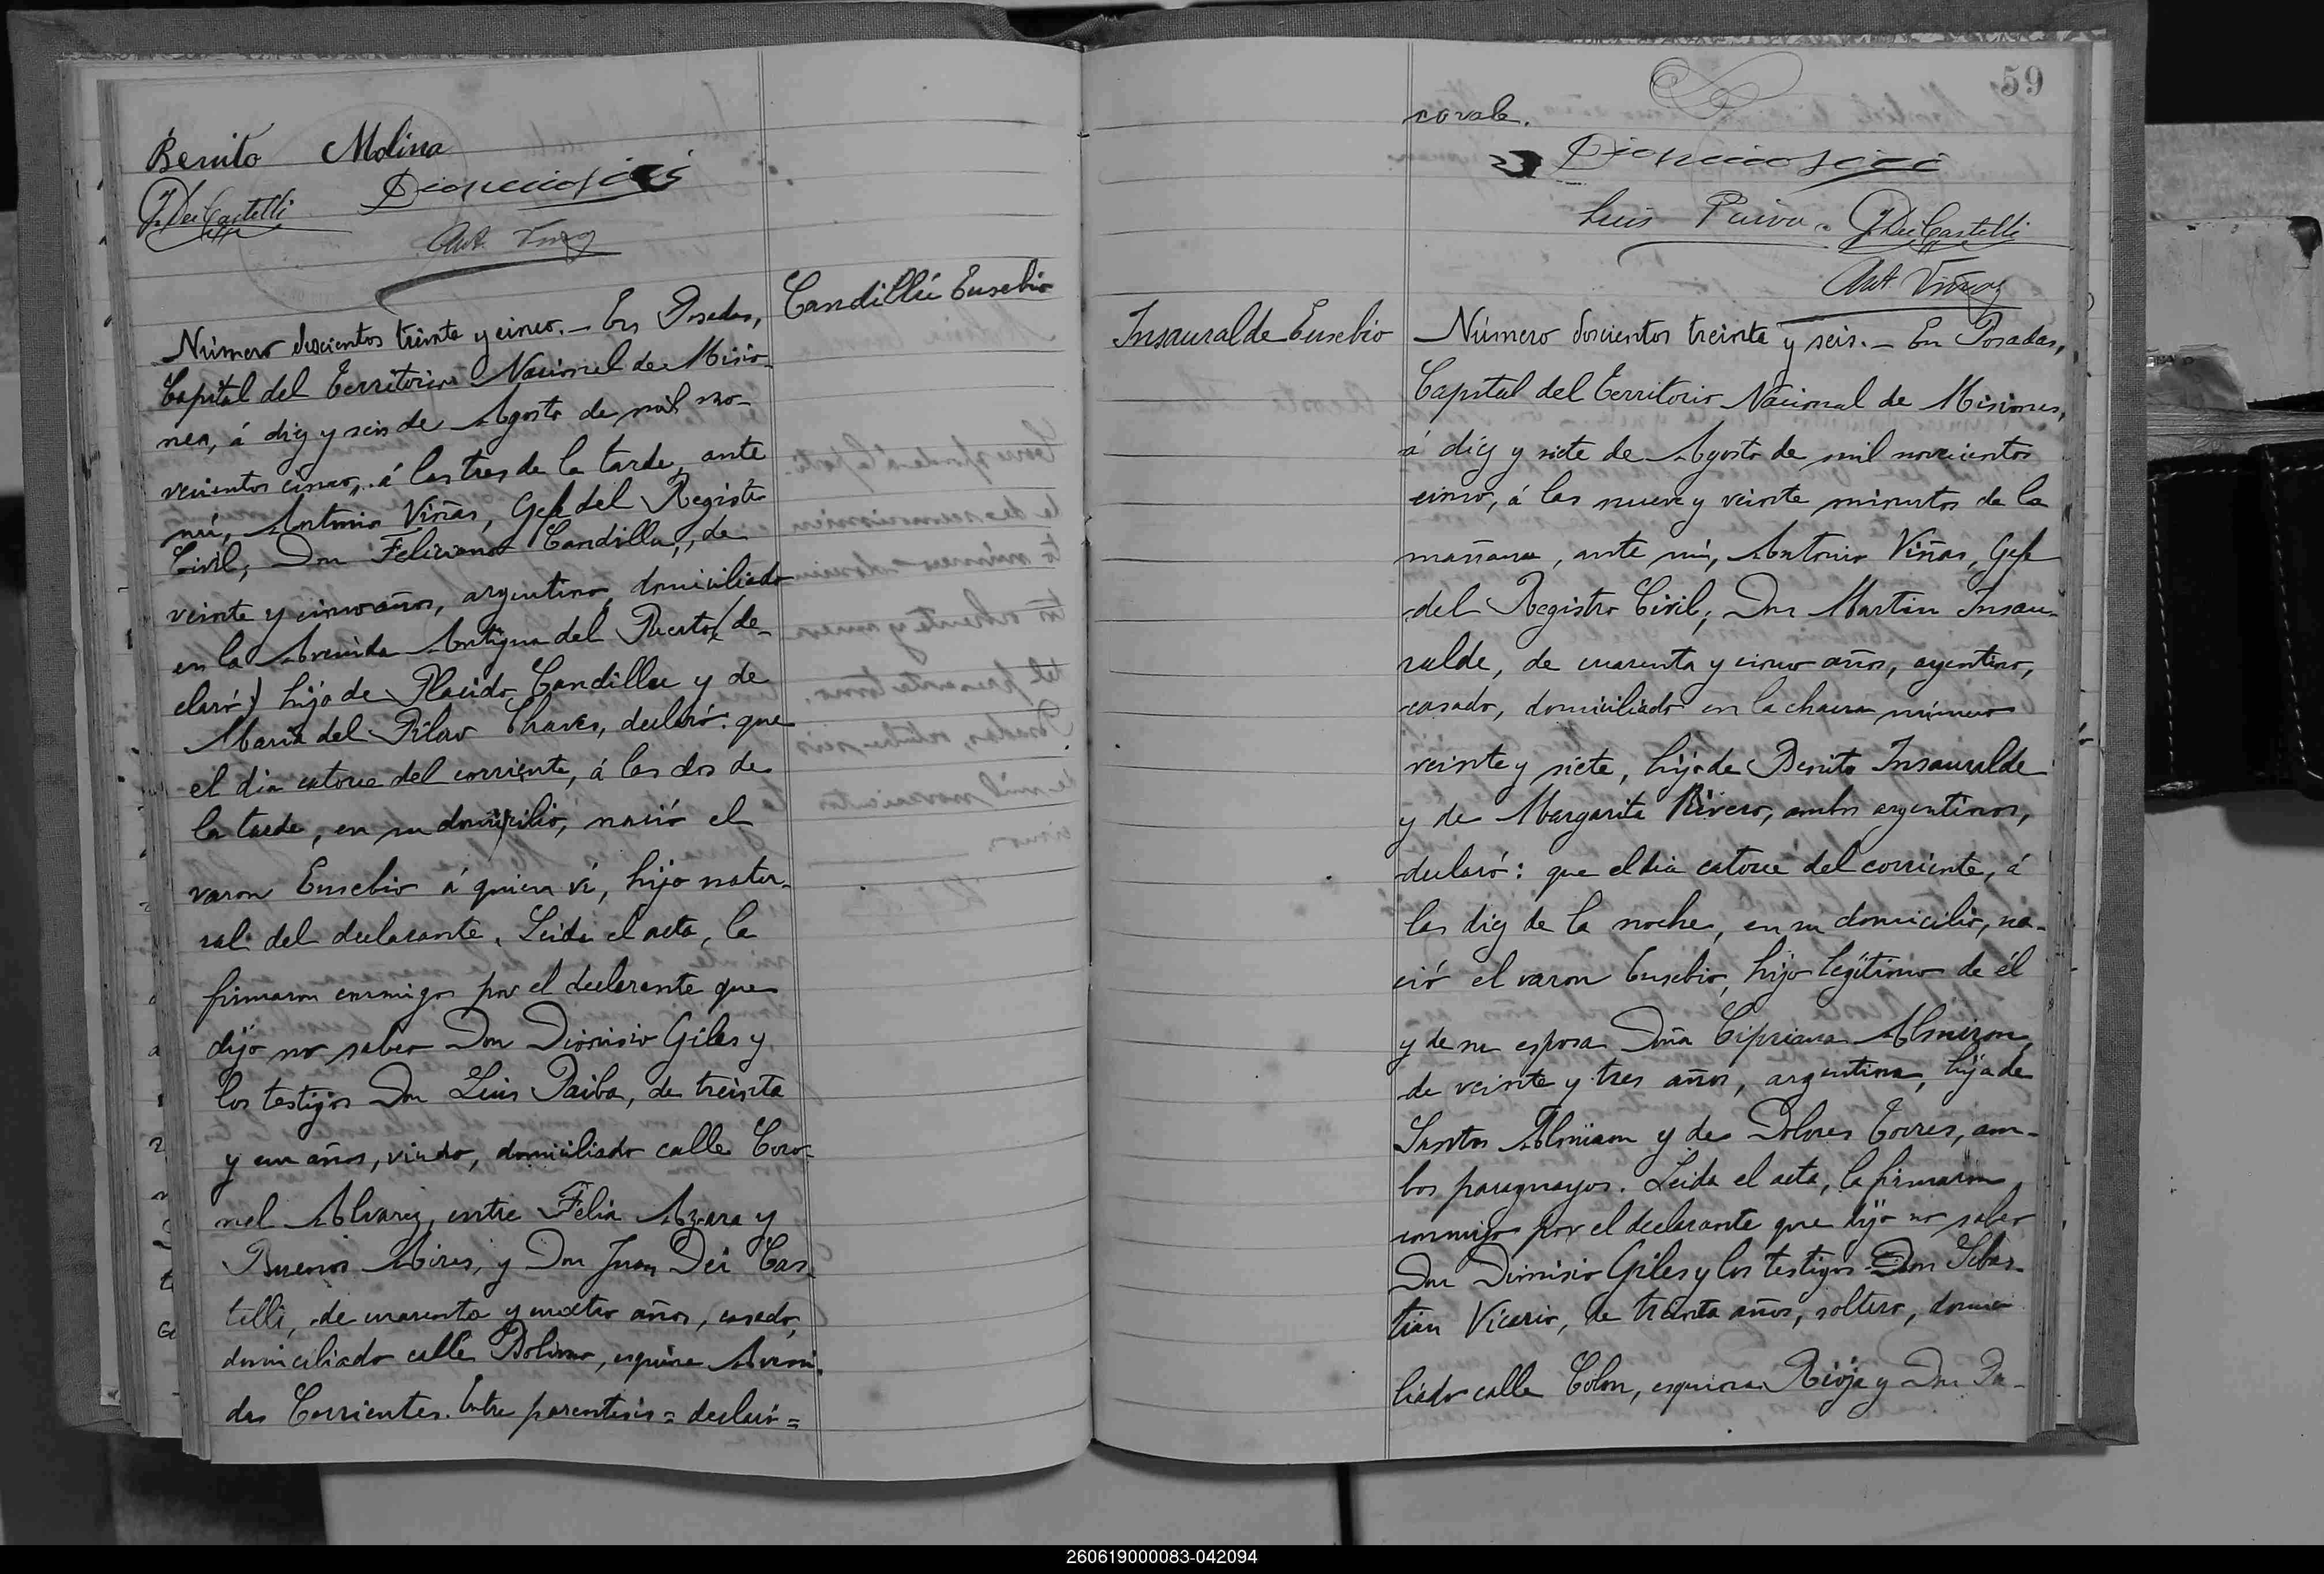 Benito Molina
J. Dei Castelli
Ant. Viñas
Candillú Eusebio
Número doscientos treinta y cinco. – En Posadas,
Capital del Territorio Nacional de Misio-
nes, á diez y seis de Agosto de mil no-
vecientos cinco, á las tres de la tarde, ante
mí, Antonio Viñas, Gefe del Registro
Civil, Don Feliciano Candillu, de
veinte y cinco años, argentino, domiciliado
en la Avenida Antigua del Puerto (de-
claró) hijo de Placido Candillu y de
Maria del Pilar Chaves, declaró: que
el dia catorce del corriente, á las dos de
la tarde, en su domicilio, nació el
varon Eusebio á quien ví, hijo natu-
ral del declarante. Leida el acta, la
firmaron conmigo por el declarante que
dijo no saber Don Dionisio Giles y
los testigos Don Luis Paiba, de treinta
y un años, viudo, domiciliado calle Coro-
nel Alvarez, entre Felix Azara y
Buenos Aires, y Don Juan Dei Cas-
telli, de cuarenta y cuatro años, casado,
domiciliado calle Bolivar, esquina Aveni-
das Corrientes. Entre parentesis = declaró =
59
no vale.
Luis Paiva. J. Dei Castelli
Ant. Viñas
Insauralde Eusebio
Número doscientos treinta y seis. – En Posadas,
Capital del Territorio Nacional de Misiones,
á diez y siete de Agosto de mil novecientos
cinco, á las nueve y veinte minutos de la
mañana, ante mí, Antonio Viñas, Gefe
del Registro Civil, Don Martin Insau-
ralde, de cuarenta y cinco años, argentino,
casado, domiciliado en la chacra número
veinte y siete, hijo de Benito Insauralde
y de Margarita Rivero, ambos argentinos,
declaró: que el dia catorce del corriente, á
las diez de la noche, en su domicilio, na-
ció el varon Eusebio, hijo legítimo de él
y de su esposa Doña Cipriana Almiron,
de veinte y tres años, argentina, hija de
Santos Almiron y de Dolores Torres, am-
bos paraguayos. Leida el acta, la firmaron
conmigo por el declarante que dijo no saber
Don Dionisio Giles y los testigos Don Sebas-
tian Vicario, de treinta años, soltero, domici
liado calle Colon, esquina Rioja y Don Pa-
260619000083-042094